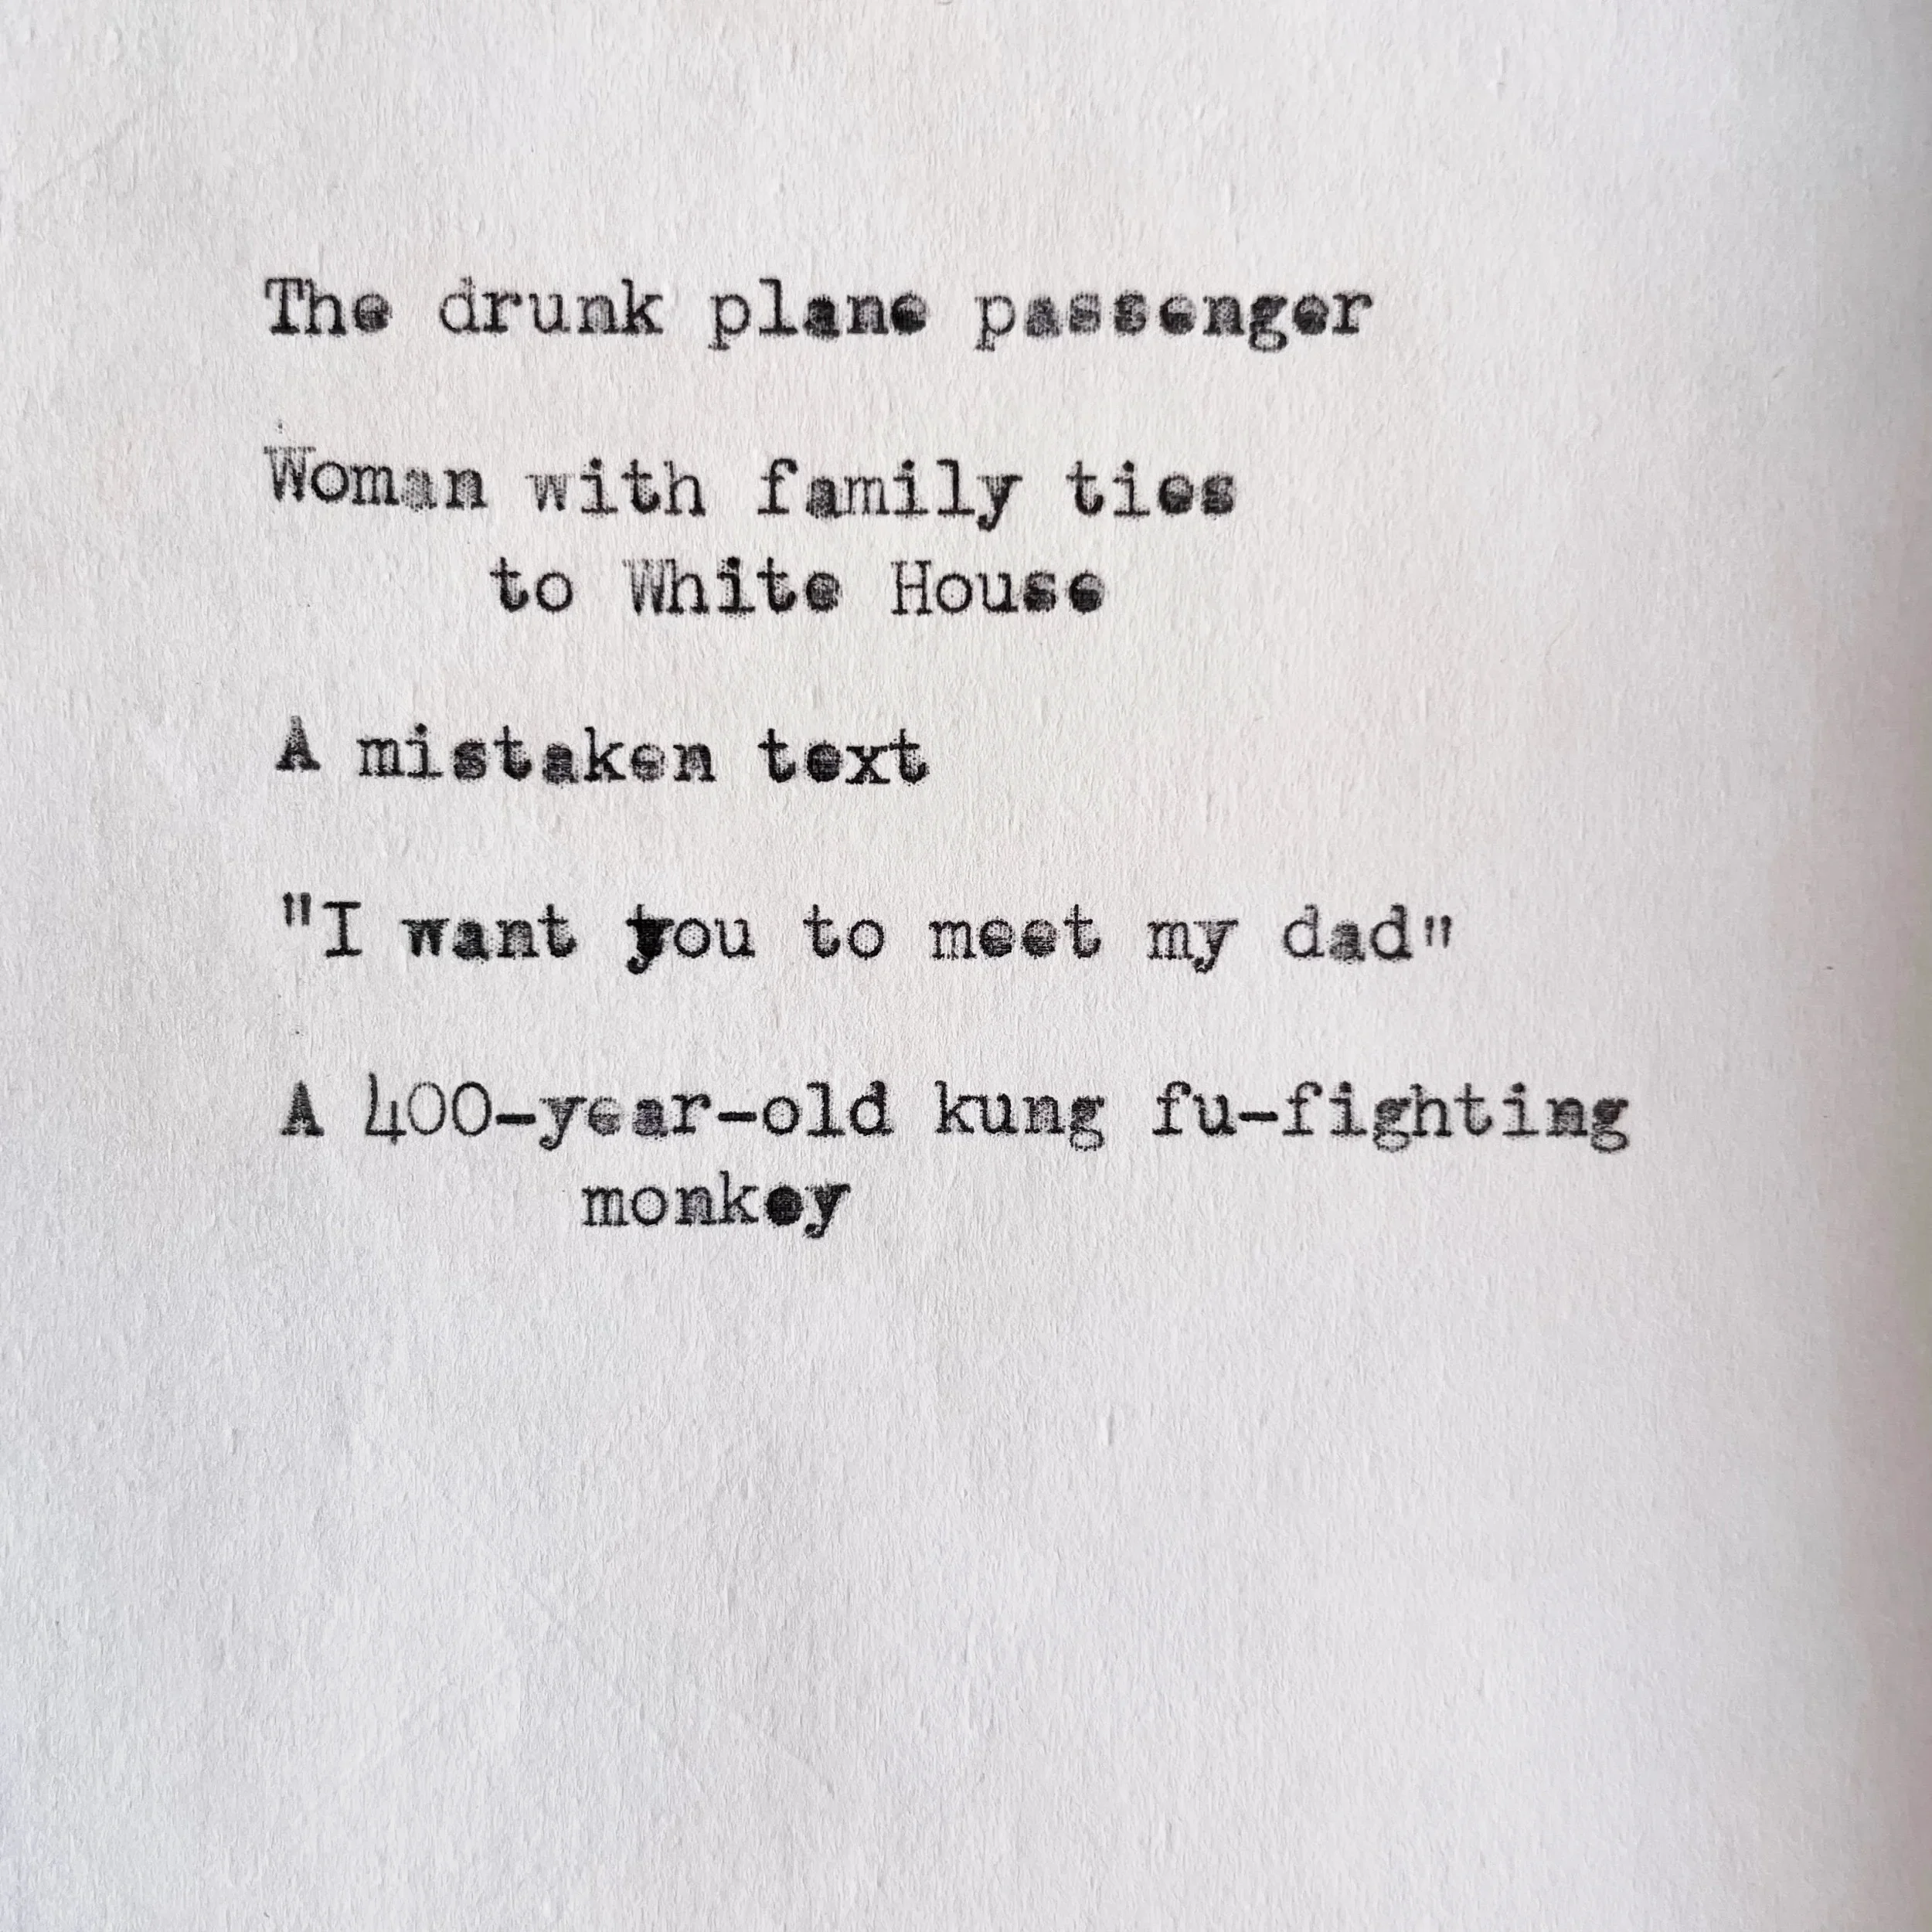 The drunk plane passenger
Woman with family ties
to White House
A mistaken text
"I want you to meet my dad"
A 400-year-old kung fu-fighting
monkey